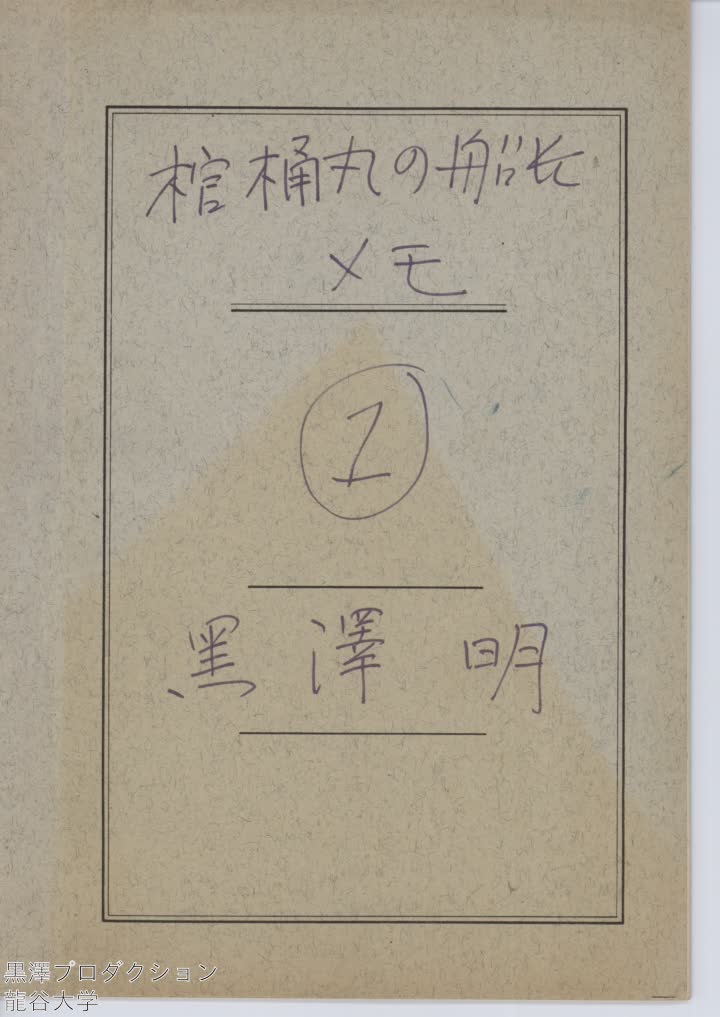 棺桶丸の船长
メモ
①
黒澤明
黒澤プロダクション
龍谷大学